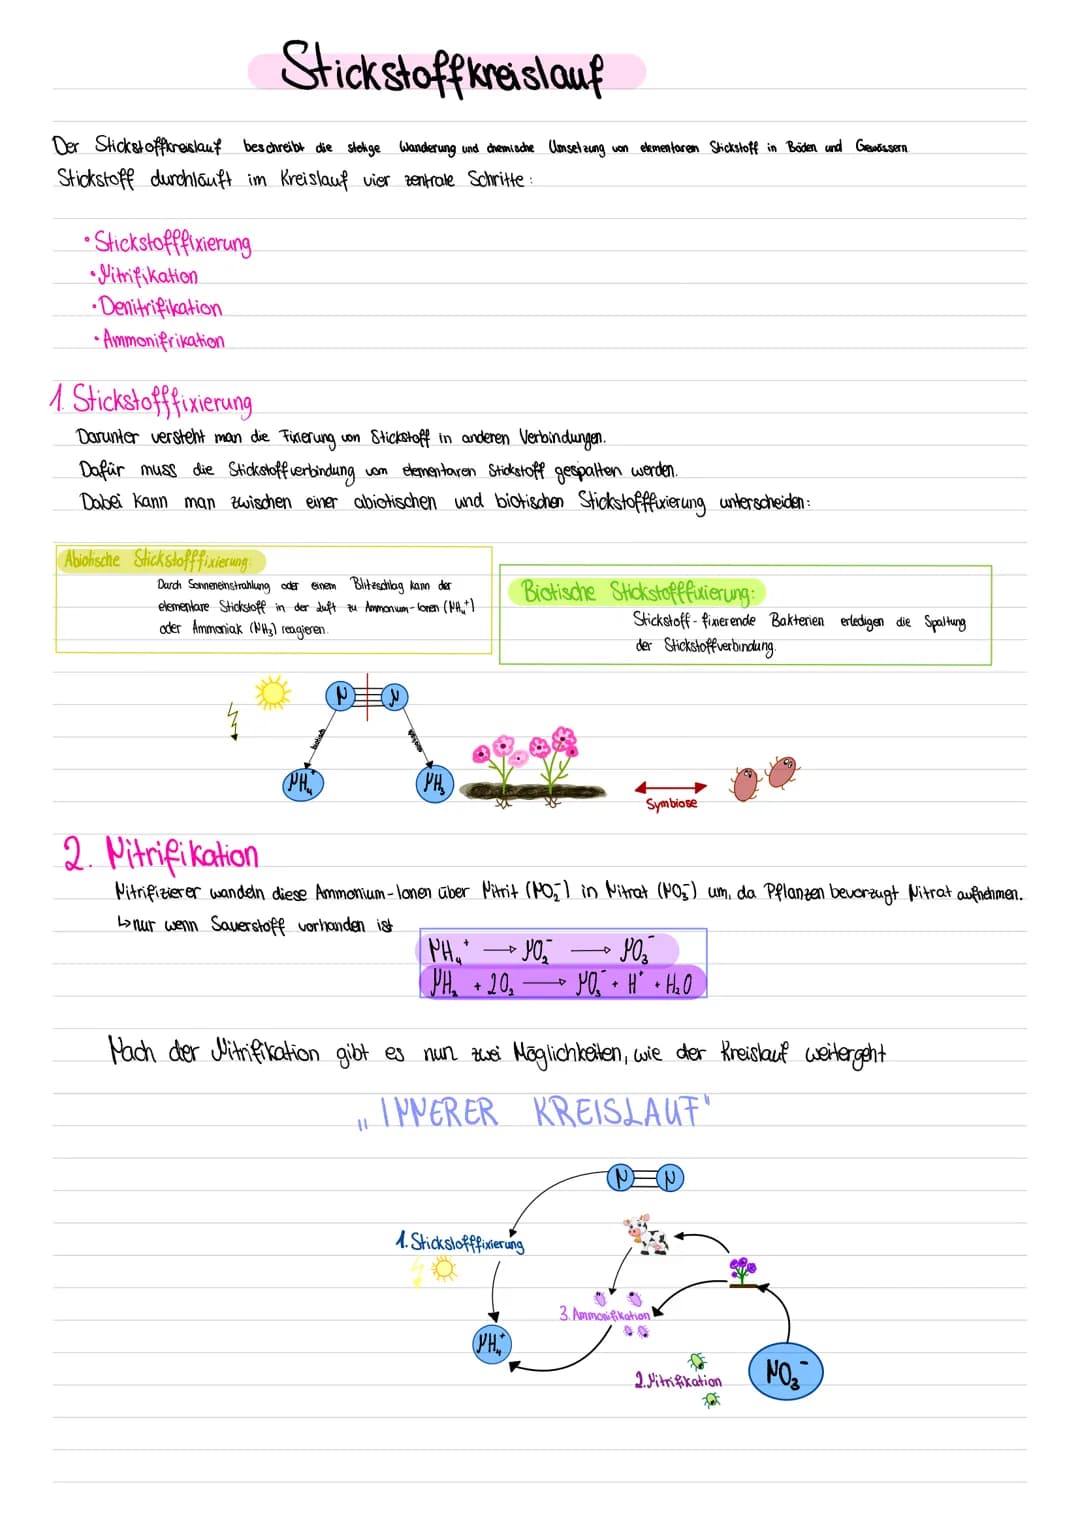 Stickstoffkreislauf
Der Stickstoffkreislauf beschreibt die stetige Wanderung und chemische Umsetzung von elementarem Stickstoff in Böden und Gewässern
Stickstoff durchläuft im Kreislauf vier zentrale Schritte:
• Stickstofffixierung
• Nitrifikation
• Denitrifikation
• Ammonifrikation
1. Stickstofffixierung
Darunter versteht man die Fixierung von Stickstoff in anderen Verbindungen.
Dafür muss die Stickstoffverbindung vom elementaren Stickstoff gespalten werden.
Dabei kann man zwischen einer abiotischen und biotischen Stickstofffixierung unterscheiden:
Abiotische Stickstofffixierung:
Durch Sonneneinstrahlung oder einem Blitzschlag kann der
elementare Stickstoff in der Luft zu Ammonium-Ionen (NH₄⁺)
oder Ammoniak (NH₃) reagieren.
Biotische Stickstofffixierung:
Stickstoff-fixierende Bakterien erledigen die Spaltung
der Stickstoffverbindung.
N N
NH₄⁺ NH₃
Symbiose
2. Nitrifikation
Nitrifizierer wandeln diese Ammonium-Ionen über Nitrit (NO₂⁻) in Nitrat (NO₃⁻) um, da Pflanzen bevorzugt Nitrat aufnehmen.
↳ nur wenn Sauerstoff vorhanden ist
NH₄⁺ → NO₂⁻ → NO₃⁻
NH₃ + 2O₂ → NO₃⁻ + H⁺ + H₂O
Nach der Nitrifikation gibt es nun zwei Möglichkeiten, wie der Kreislauf weitergeht
„INNERER KREISLAUF"
N N
1. Stickstofffixierung
3. Ammonifikation
NH₄⁺
2. Nitrifikation
NO₃⁻